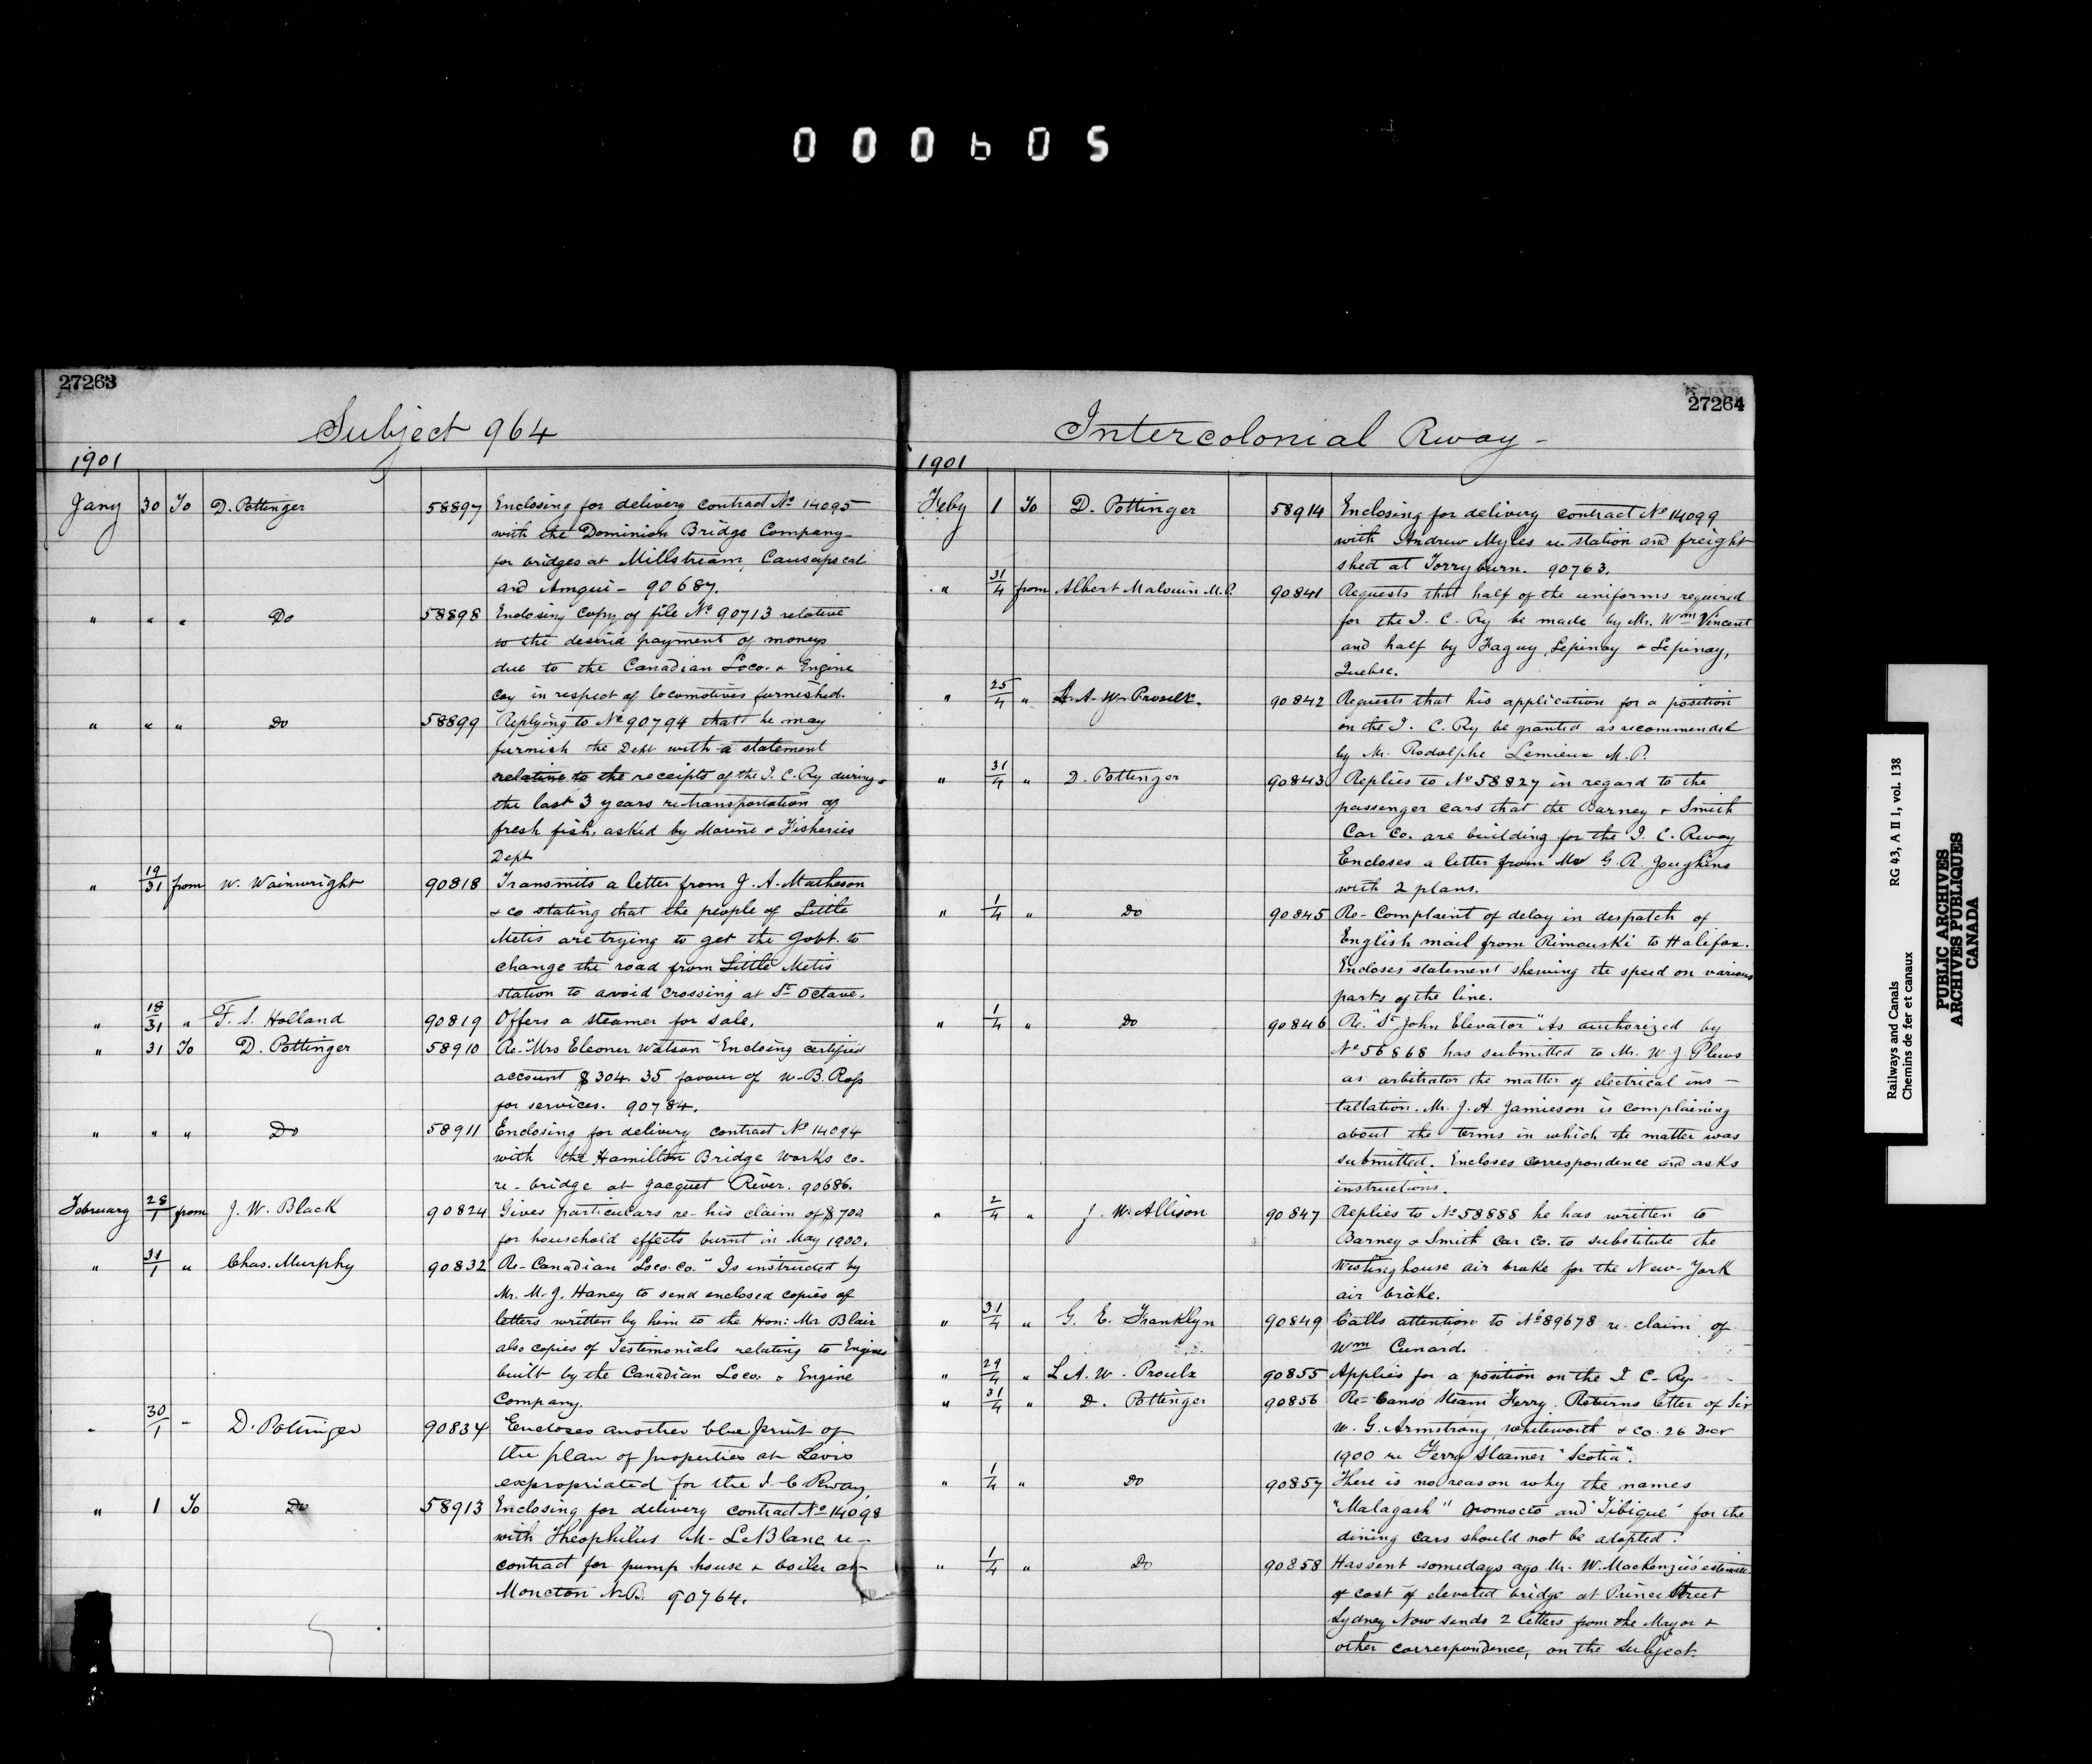 000605
27263
Subject 964
1901
Jany 30 To D. Pottinger 58897 Enclosing for delivery contract No 14095
with the Dominion Bridge Company
for bridges at Millstream, Causapscal
and Amqui - 90687.
" " " Do 58898 Enclosing copy of file No 90713 relative
to the desired payment of moneys
due to the Canadian Loco. & Engine
Coy in respect of locomotives furnished.
" " " Do 58899 Replying to No 90794 that he may
furnish the Dept with a statement
relative to the receipts of the I. C. Ry during
the last 3 years re transportation of
fresh fish, asked by Marine & Fisheries
Dept
" 19/31 from W. Wainwright 90818 Transmits a letter from J. A. Matheson
& co stating that the people of Little
Metis are trying to get the Govt. to
change the road from Little Metis
station to avoid crossing at St Octave.
" 18/31 " F. S. Holland 90819 Offers a steamer for sale.
" 31 To D. Pottinger 58910 Re. "Mrs Eleoner Watson" Enclosing certified
account $304.35 favour of W. B. Ross
for services. 90784.
" " " Do 58911 Enclosing for delivery contract No 14094
with the Hamilton Bridge Works Co.
re - bridge at Jacquet River. 90686.
February 28/1 from J. W. Black 90824 Gives particulars re - his claim of $700
for household effects burnt in May 1900.
" 31/1 " Chas. Murphy 90832 Re - Canadian "Loco. Co." Is instructed by
Mr. M. J. Haney to send enclosed copies of
letters written by him to the Hon: Mr Blair
also copies of Testimonials relating to Engines
built by the Canadian Loco. & Engine
Company.
" 30/1 " D. Pottinger 90834 Encloses another blue print of
the plan of properties at Levis
expropriated for the I. C. Rway.
" 1 To Do 58913 Enclosing for delivery contract No 14098
with Theophilus M. LeBlanc re -
contract for pump house & boiler at
Moncton N.B. 90764.
27264
Intercolonial Rway -
1901
Feby 1 To D. Pottinger 58914 Enclosing for delivery contract No 14099
with Andrew Myles re station and freight
shed at Torryburn. 90763.
" 31/4 from Albert Malouin M.P. 90841 Requests that half of the uniforms required
for the I. C. Ry be made by Mr. Wm Vincent
and half by Faguy, Lepinay & Lepinay,
Quebec.
" 25/4 " L. A. W. Proulx. 90842 Requests that his application for a position
on the I. C. Ry be granted as recommended
by Mr. Rodolphe Lemieux M.P.
" 31/4 " D. Pottinger 90843 Replies to No 58827 in regard to the
passenger cars that the Barney & Smith
Car Co. are building for the I. C. Rway
Encloses a letter from Mr G. R. Joughins
with 2 plans.
" 1/4 " Do 90845 Re - Complaint of delay in despatch of
English mail from Rimouski to Halifax.
Encloses statement shewing the speed on various
parts of the line.
" 1/4 " Do 90846 Re. "St John Elevator" As authorized by
No 56868 has submitted to Mr. W. J. Plews
as arbitrator the matter of electrical ins -
tallation. Mr. J. A. Jamieson is complaining
about the terms in which the matter was
submitted. Encloses correspondence and asks
instructions.
" 2/4 " J. W. Allison 90847 Replies to No 58888 he has written to
Barney & Smith Car Co. to substitute the
Westinghouse air brake for the New-York
air brake.
" 31/4 " G. E. Franklyn 90849 Calls attention to No 89678 re claim of
Wm Cunard.
" 29/4 " L. A. W. Proulx 90855 Applies for a position on the I. C. Ry.
" 31/4 " D. Pottinger 90856 Re - Canso Steam Ferry. Returns letter of Sir
W. G. Armstrong, Whitworth & Co. 26 Decr
1900 re Ferry Steamer "Scotia".
" 1/4 " Do 90857 There is no reason why the names
"Malagash" Oromocto and "Tibique" for the
dining cars should not be adopted.
" 1/4 " Do 90858 Has sent somedays ago Mr. W. Mackenzie's estimate
of cost of elevated bridge at Prince Street
Sydney Now sends 2 letters from the Mayor &
other correspondence, on the subject.
Railways and Canals RG 43, A II 1, vol. 138
Chemins de fer et canaux
PUBLIC ARCHIVES
ARCHIVES PUBLIQUES
CANADA